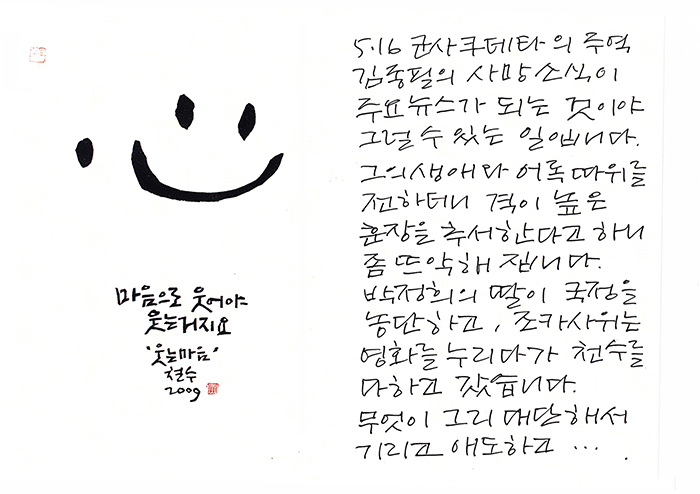 마음으로 웃어야
웃는거지요
'웃는마음'
철수
2009
5·16 군사쿠데타의 주역
김종필의 사망소식이
주요뉴스가 되는 것이야
그럴 수 있는 일입니다.
그의 생애와 어록 따위를
전하더니 격이 높은
훈장을 추서한다고 하니
좀 뜨악해 집니다.
박정희의 딸이 국정을
농단하고, 조카사위는
영화를 누리다가 천수를
다하고 갔습니다.
무엇이 그리 대단해서
기리고 애도하고 …